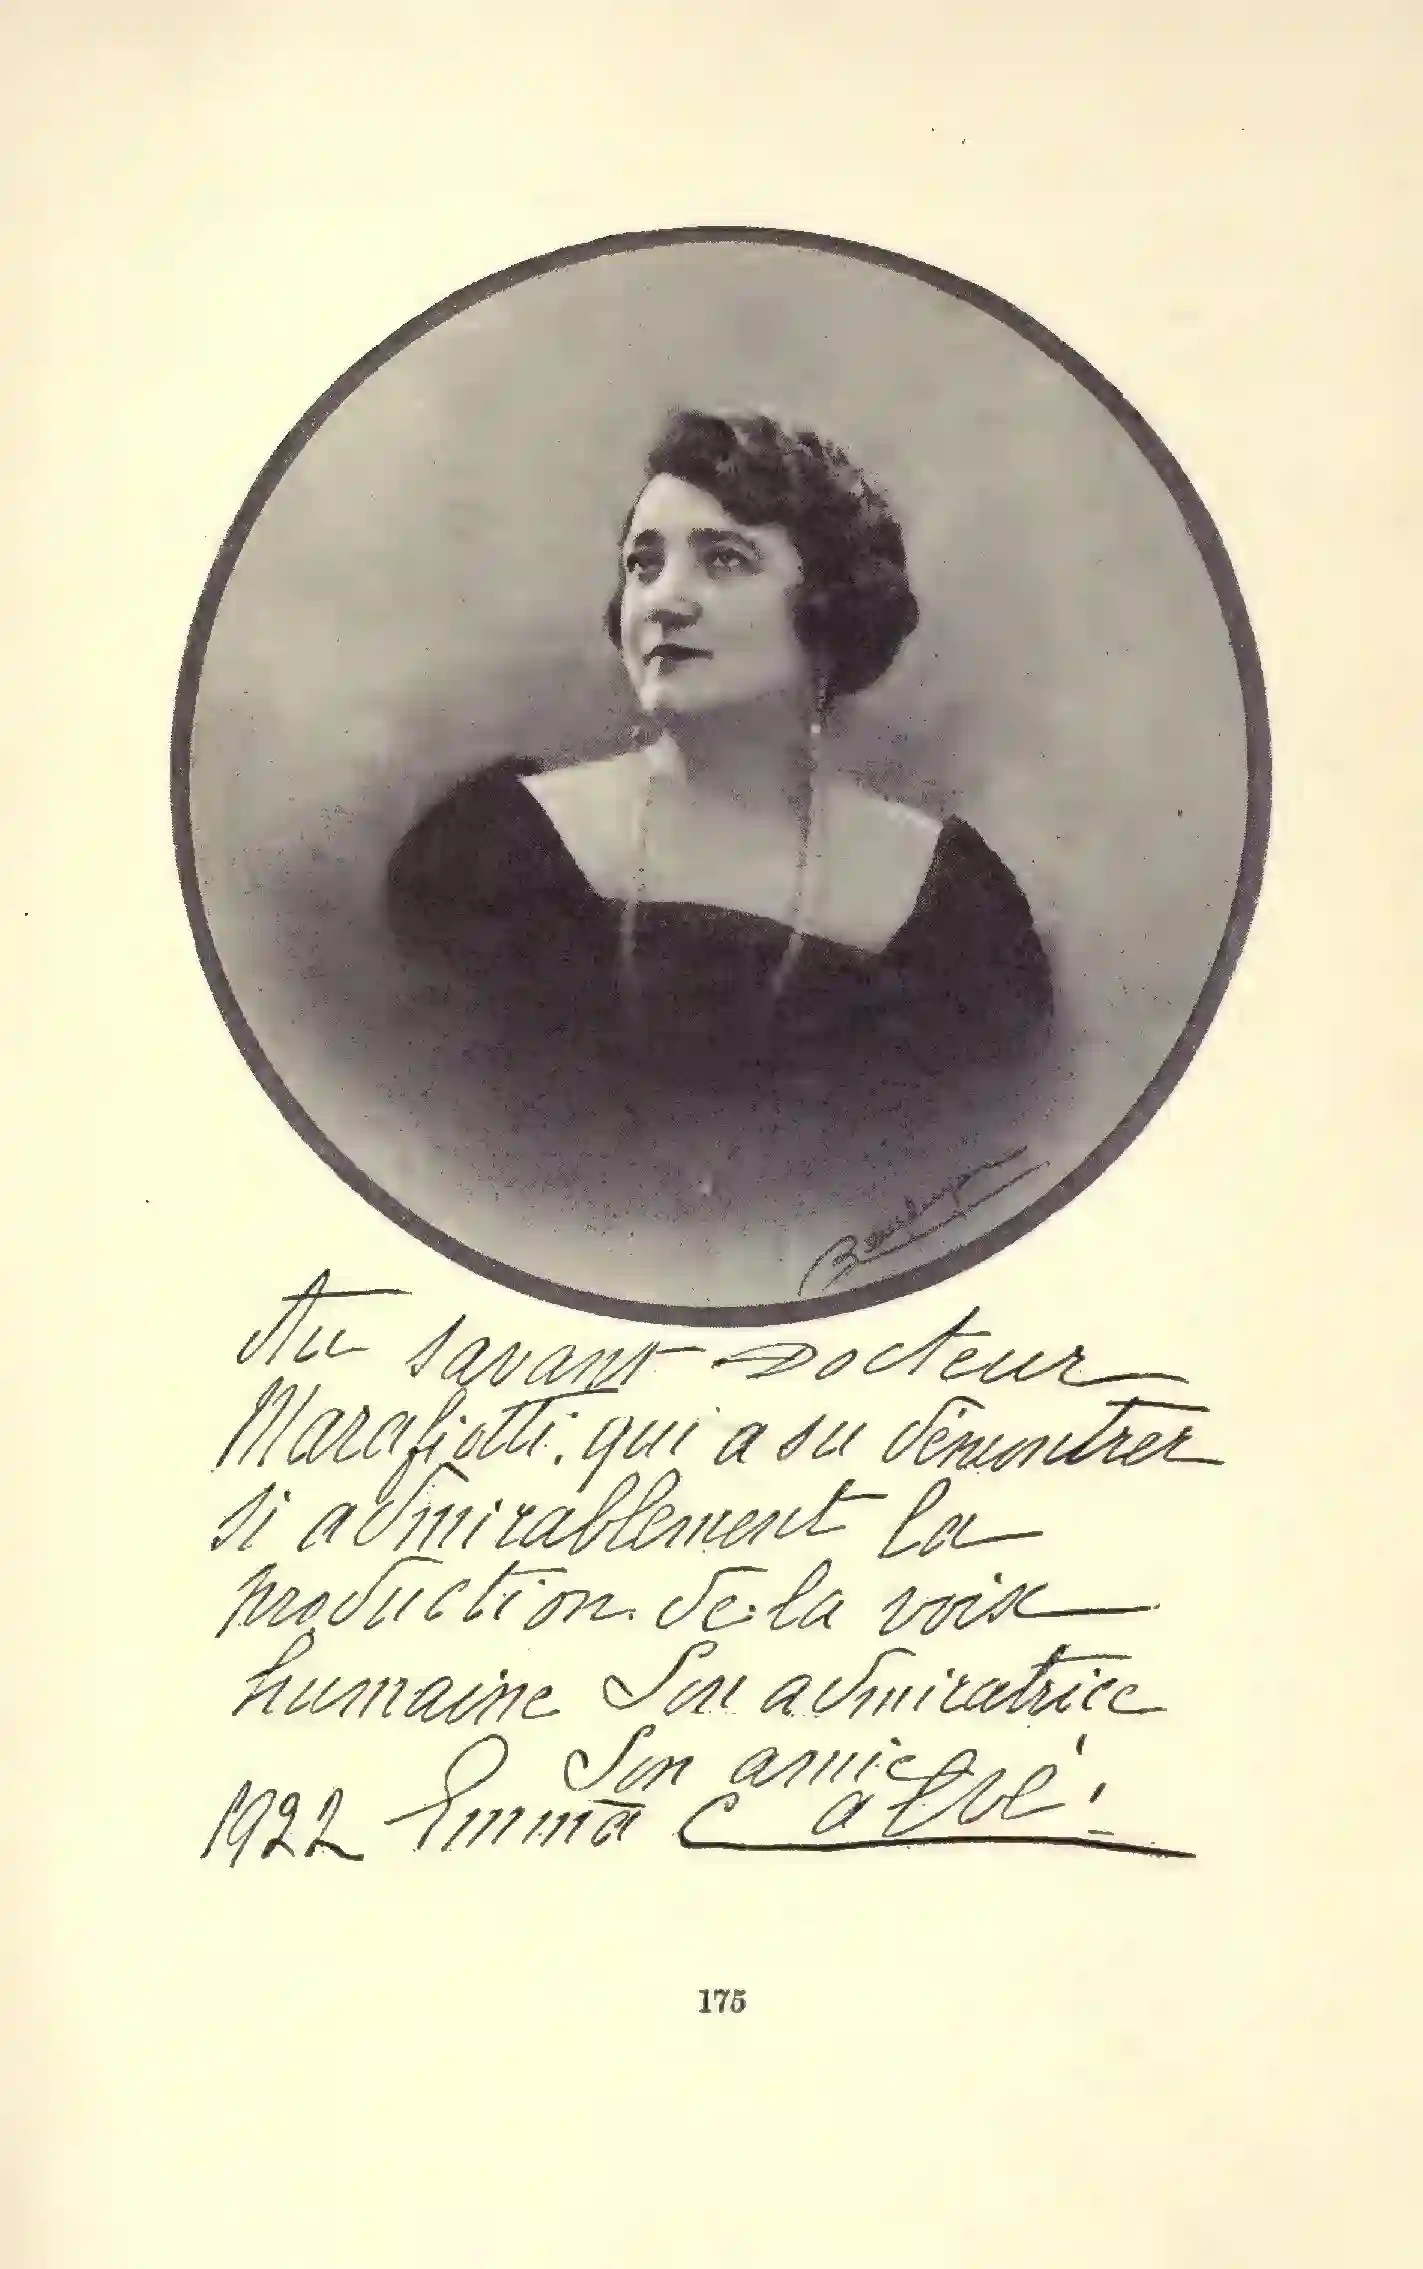 Au savant Docteur
Marafiotti. qui a su démontrer
si admirablement la
production de la voix
humaine Son admiratrice
Son amie
1922 Emma Calvé.
175